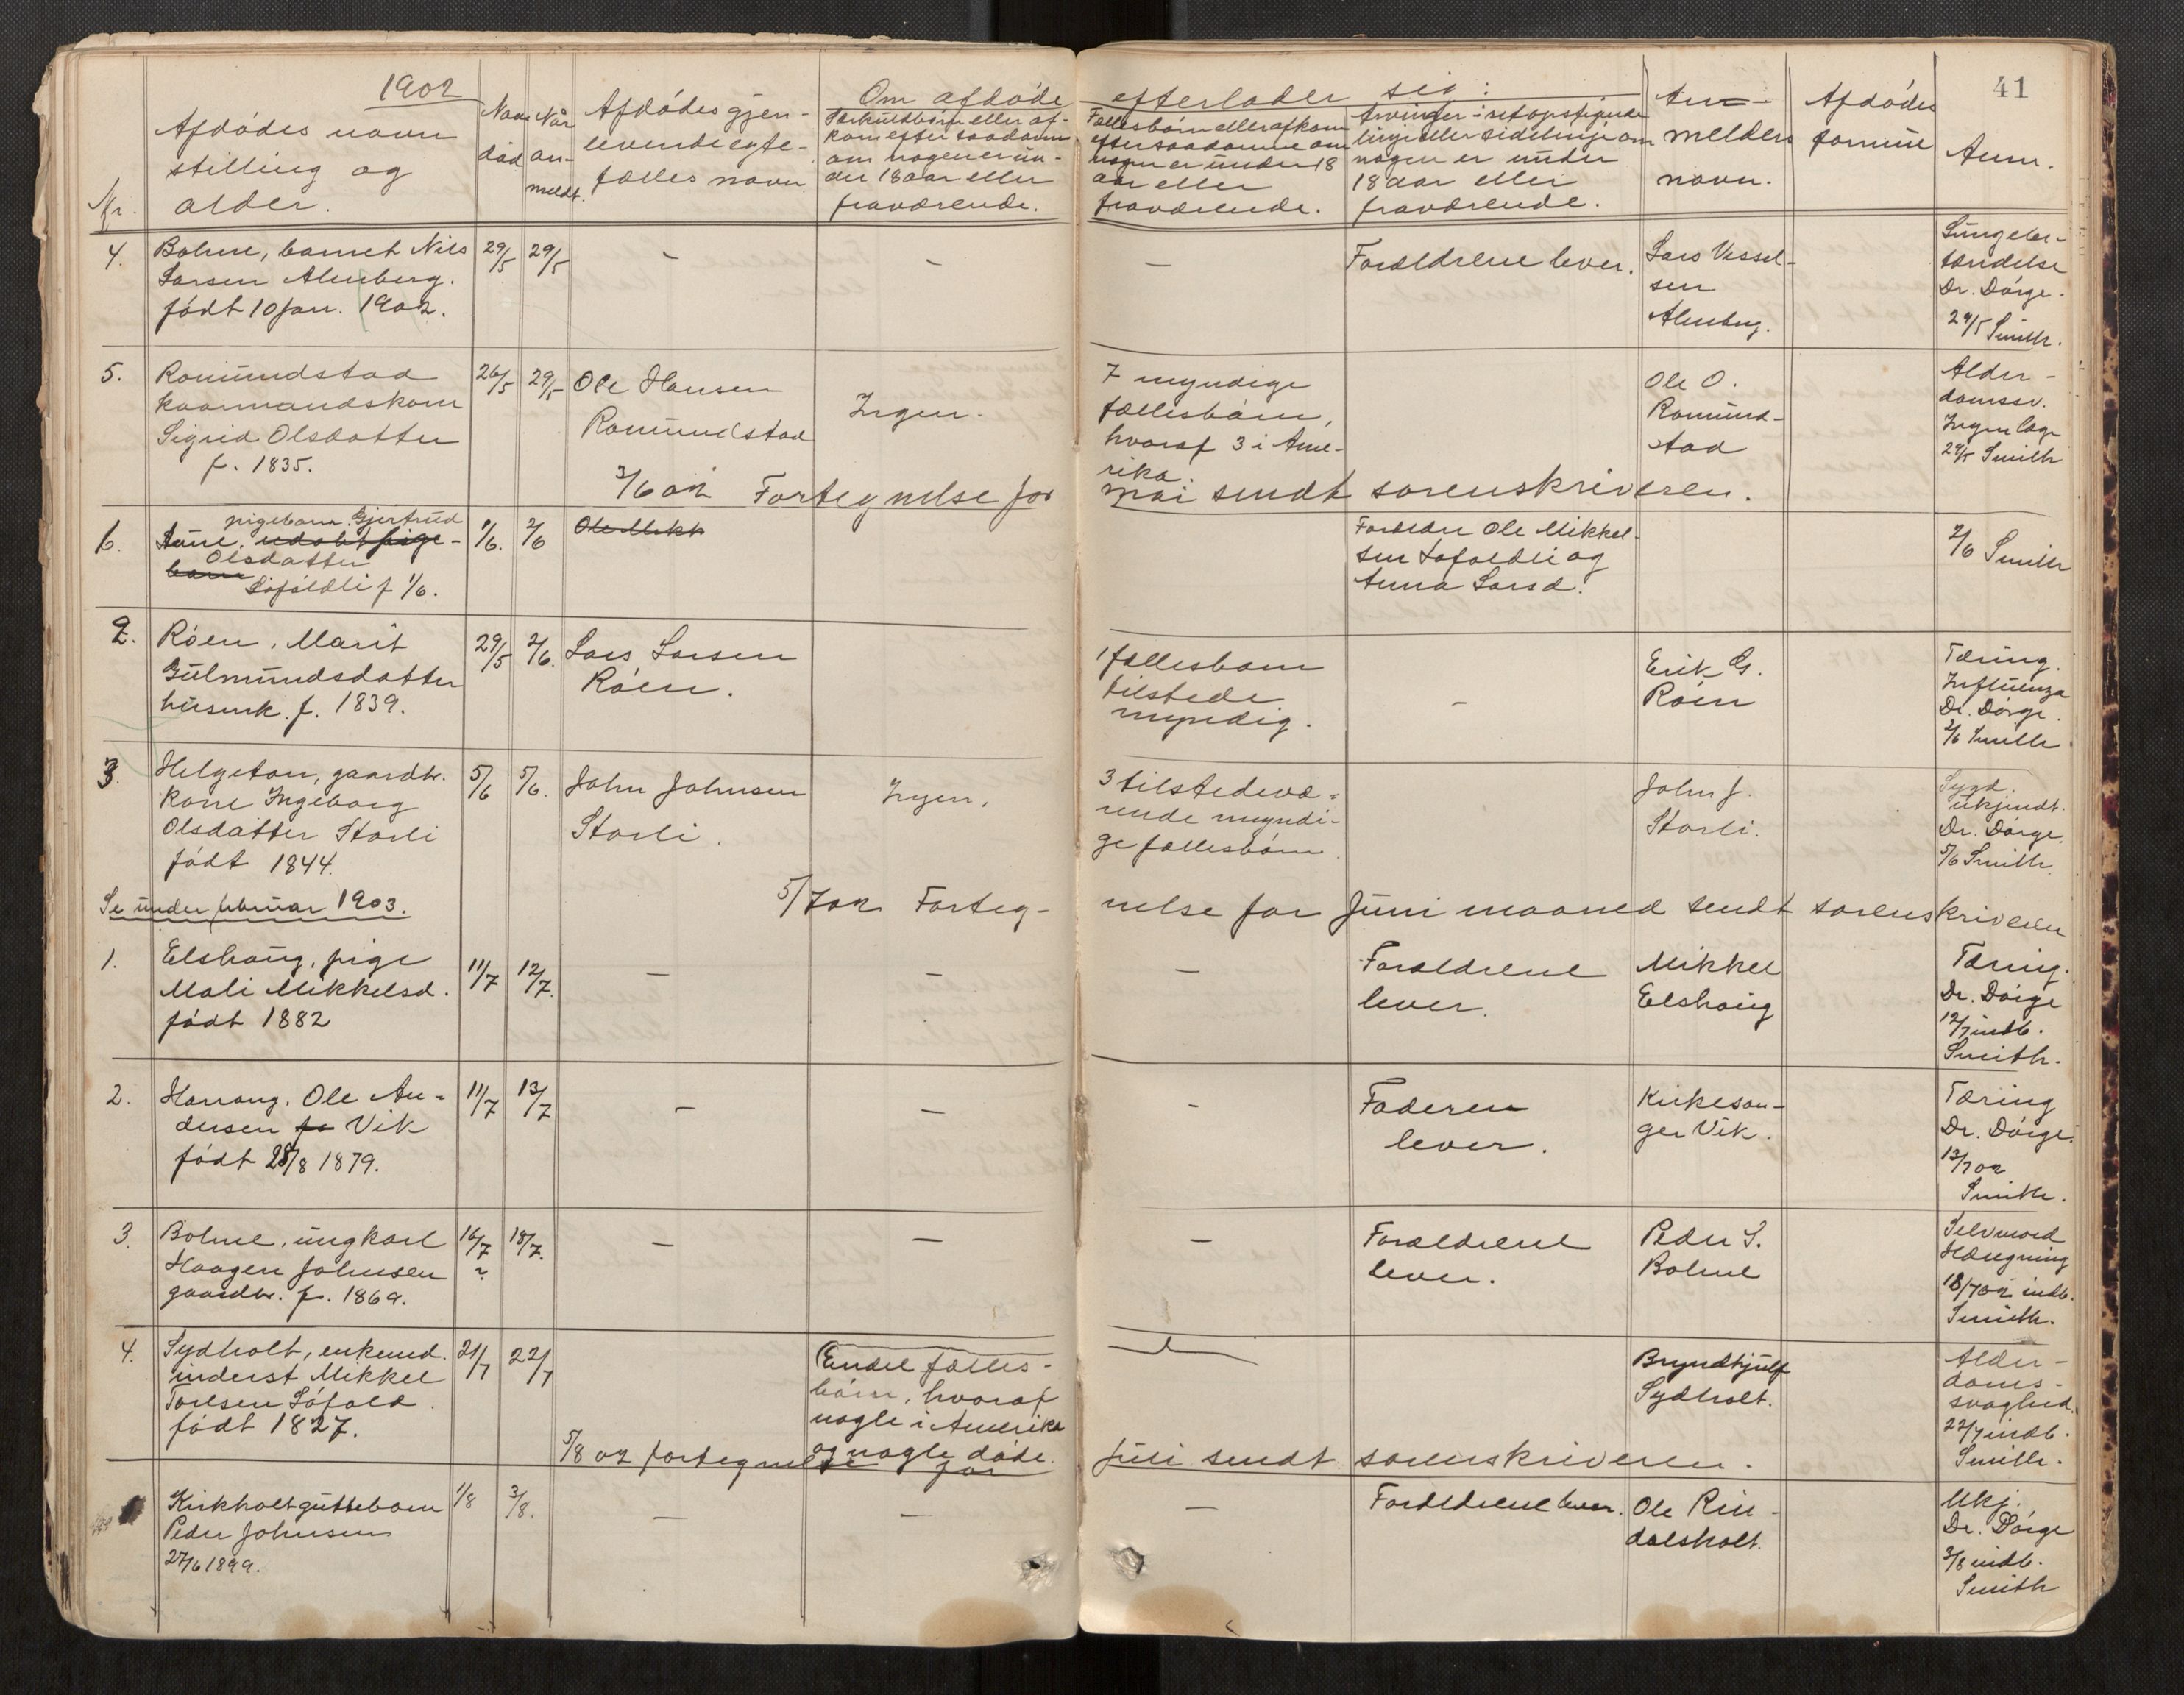 1902
41
Nr.
Afdødes navn
stilling og
alder.
Naar
død
Når
an-
meldt.
Afdødes gjen-
levende egte-
fælles navn.
Om afdøde
Særkuldbørn eller af-
kom efter saadanne
om nogen er un-
der 18 aar eller
fraværende.
efterlader sig:
Fællesbørn eller afkom
efter saadanne om
nogen er under 18
aar eller
fraværende.
Arvinger i retopstigende
linje eller sidelinje om
nogen er under
18 aar eller
fraværende.
An-
melders
navn.
Afdødes
formue
Anm.
4.
Bolme, barnet Nils
Larsen Almberg.
født 10 jan. 1902.
29/5
29/5
-
-
-
Forældrene lever.
Lars Vessel-
sen
Almberg.
Lungebe-
tændelse
Dr. Dørge.
29/5 Smith.
5.
Romundstad
kaarmandskone
Sigrid Olsdatter
f. 1835.
26/5
29/5
Ole Hansen
Romundstad
Ingen.
7 myndige
fællesbørn,
hvoraf 3 i Ame-
rika.
Ole O.
Romund-
stad
Alder-
domssv.
Ingen læge
29/5 Smith
3/6 02 Fortegnelse for mai sendt sorenskriveren.
6.
pigebarn Gjertrud
Aune, udøbt pige-
Olsdatter
barn
Løfoldli f 1/6.
1/6.
2/6
Ole Mikk
Forældre Ole Mikkel-
sen Løfoldli og
Anna Larsd.
2/6 Smith
2.
Røen, Marit
Gulmundsdatter
husmk. f. 1839.
29/5
2/6.
Lars Larsen
Røen.
1 fællesbarn
tilstede
myndig.
-
Erik G.
Røen
Tæring.
Influenza
Dr. Dørge.
2/6 Smith
3.
Helgeton, gaardbr.
kone Ingeborg
Olsdatter Storli
født 1844.
5/6
5/6.
John Johnsen
Storli.
Ingen.
3 tilstedevæ-
rende myndi-
ge fællesbørn
John J.
Storli.
Sygd.
ukjendt.
Dr. Dørge.
5/6 Smith.
Se under februar 1903.
5/7 02 Forteg- nelse for Juni maaned sendt sorenskriveren
1.
Elshaug, pige
Mali Mikkelsd.
født 1882
11/7
12/7.
-
-
-
Forældrene
lever.
Mikkel
Elshaug
Tæring.
Dr. Dørge
12/7 indb.
Smith.
2.
Harang, Ole An-
dersen fo Vik
født 28/8 1879.
11/7
13/7
-
-
-
Faderen
lever.
Kirkesan-
ger Vik.
Tæring
Dr. Dørge.
13/7 02
Smith.
3.
Bolme, ungkarl
Haagen Johnsen
gaardbr. f. 1869.
16/7
?
18/7.
-
-
-
Forældrene
lever.
Peder S.
Bolme
Selvmord
Hængning
18/7 02 indb.
Smith.
4.
Sydholt, enkemd.
inderst Mikkel
Torlsen Løfald.
født 1827.
21/7
22/7
Endel fælles-
børn, hvoraf
nogle i Amerika
og nogle døde.
Bryndhjulf
Sydholt.
Alder-
doms-
svaghed.
22/7 indb.
Smith.
5/8 02 fortegnelse for Juli sendt sorenskriveren.
Kirkholt guttebarn
Peder Johnsen
27/6 1899.
1/8
3/8.
-
-
-
Forældrene lever.
Ole Rin-
dalsholt.
Ukj.
Dr. Dørge
3/8 indb.
Smith